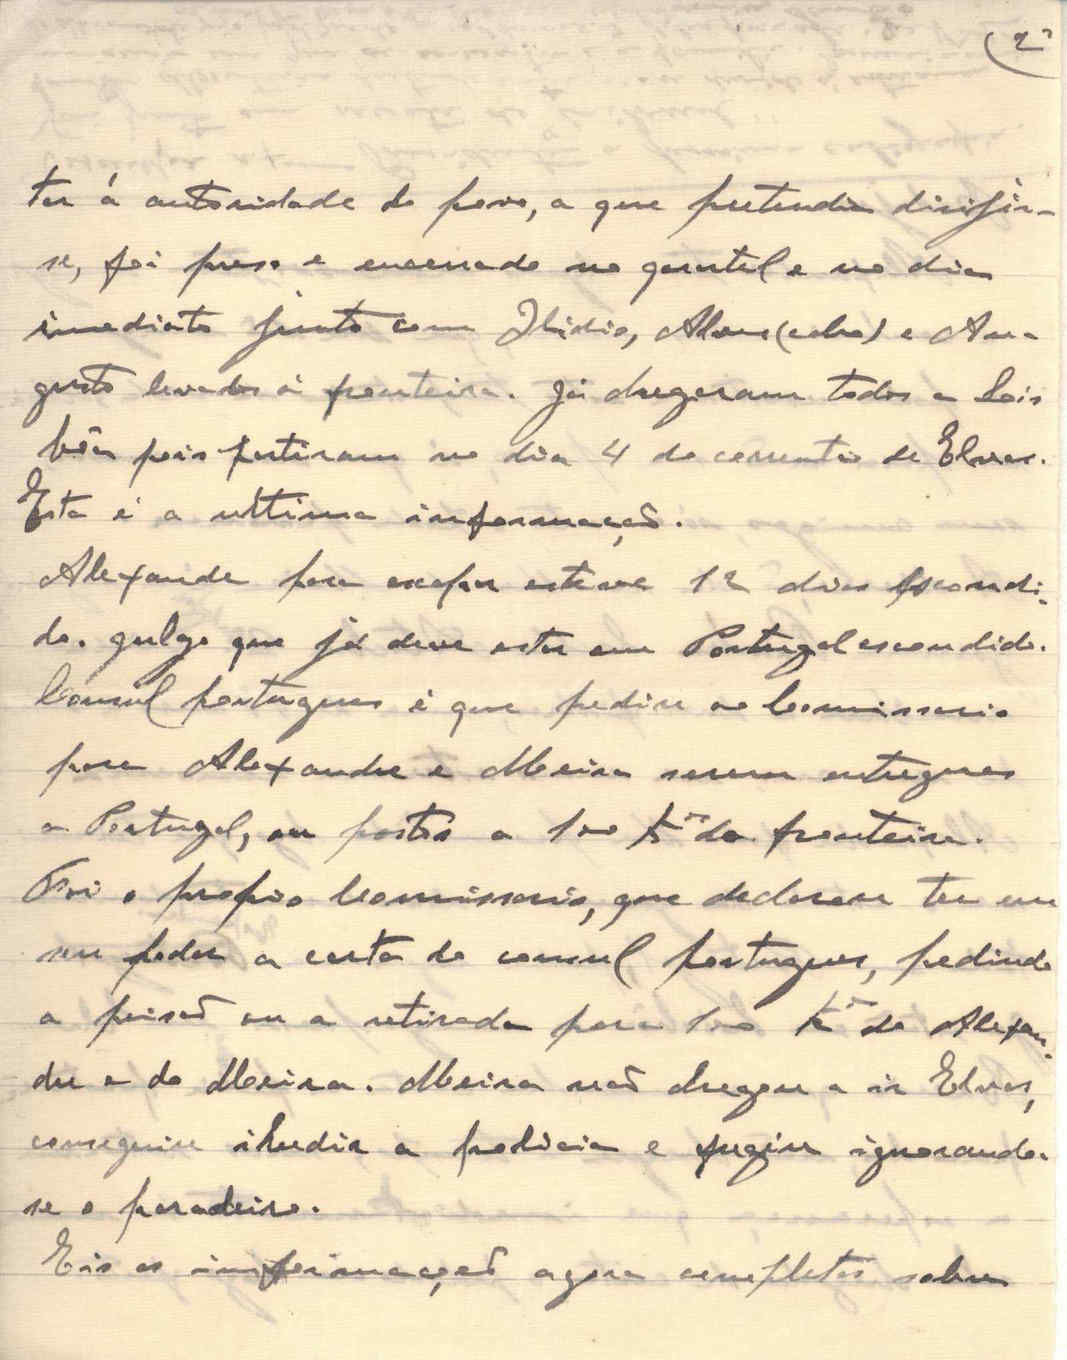 (2
ter á autoridade do povo, a que pretendia dirigir-
se, foi preso e encerrado no quartel e no dia
imediato junto com Ilidio, Alves (cabo) e Au-
gusto levados á fronteira. Já chegaram todos a Lis
bôa pois partiram no dia 4 do corrente de Elvas.
Esta é a ultima informação.
Alexandre para escapar esteve 12 dias escondi-
do. Julgo que já deve estar em Portugal escondido.
Consul portuguez é que pediu ao Comissario
para Alexandre e Meira serem entregues
a Portugal, ou postos a 100 km da fronteira.
Foi o proprio Comissario, que declarou ter em
seu poder a carta do consul portuguez, pedindo
a prisão ou a retirada para 100 km do Alexan-
dre e do Meira. Meira não chegou a ir Elvas,
conseguiu illudir a policia e fugiu ignorando-
se o paradeiro.
Eis as informação agora completas sobre